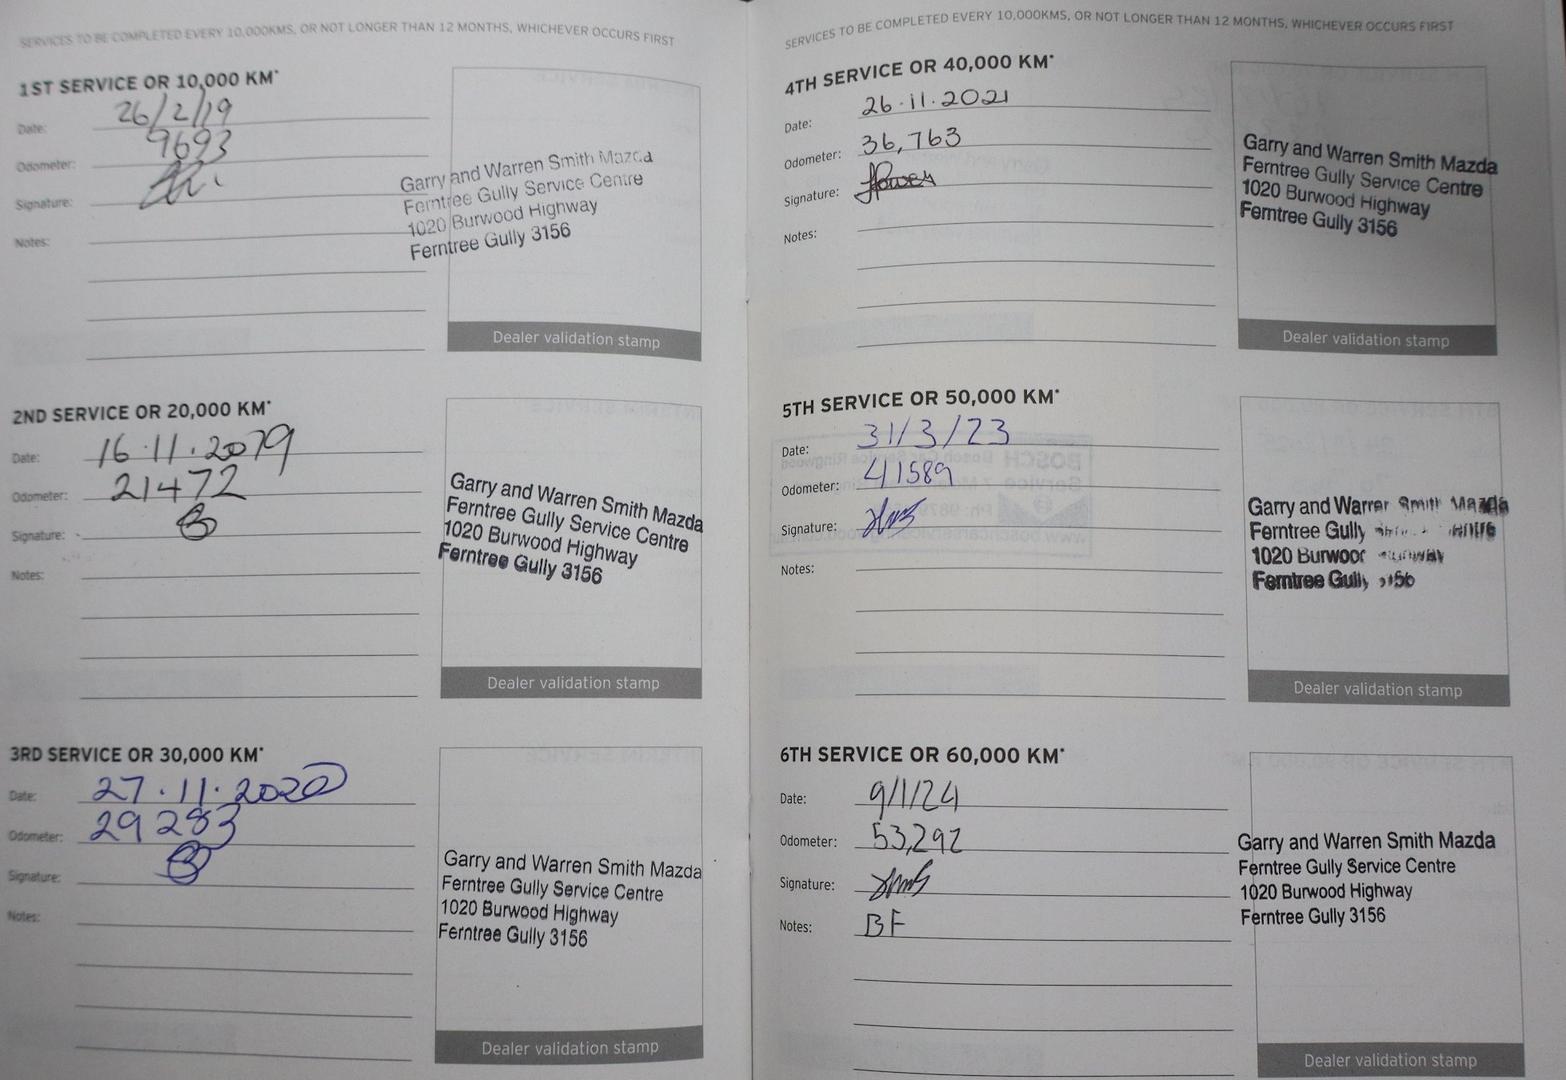 SERVICES TO BE COMPLETED EVERY 10,000KMS, OR NOT LONGER THAN 12 MONTHS, WHICHEVER OCCURS FIRST
1ST SERVICE OR 10,000 KM*
Date: 26/2/19
Odometer: 9693
Signature:
Notes:
Garry and Warren Smith Mazda
Ferntree Gully Service Centre
1020 Burwood Highway
Ferntree Gully 3156
Dealer validation stamp
2ND SERVICE OR 20,000 KM*
Date: 16.11.2019
Odometer: 21472
Signature:
Notes:
Garry and Warren Smith Mazda
Ferntree Gully Service Centre
1020 Burwood Highway
Ferntree Gully 3156
Dealer validation stamp
3RD SERVICE OR 30,000 KM*
Date: 27.11.2020
Odometer: 29283
Signature:
Notes:
Garry and Warren Smith Mazda
Ferntree Gully Service Centre
1020 Burwood Highway
Ferntree Gully 3156
Dealer validation stamp
SERVICES TO BE COMPLETED EVERY 10,000KMS, OR NOT LONGER THAN 12 MONTHS, WHICHEVER OCCURS FIRST
4TH SERVICE OR 40,000 KM*
Date: 26.11.2021
Odometer: 36,763
Signature:
Notes:
Garry and Warren Smith Mazda
Ferntree Gully Service Centre
1020 Burwood Highway
Ferntree Gully 3156
Dealer validation stamp
5TH SERVICE OR 50,000 KM*
Date: 31/3/23
Odometer: 41589
Signature:
Notes:
Garry and Warren Smith Mazda
Ferntree Gully
1020 Burwood
Ferntree Gully 3156
Dealer validation stamp
6TH SERVICE OR 60,000 KM*
Date: 9/1/24
Odometer: 53,292
Signature:
Notes: BF
Garry and Warren Smith Mazda
Ferntree Gully Service Centre
1020 Burwood Highway
Ferntree Gully 3156
Dealer validation stamp